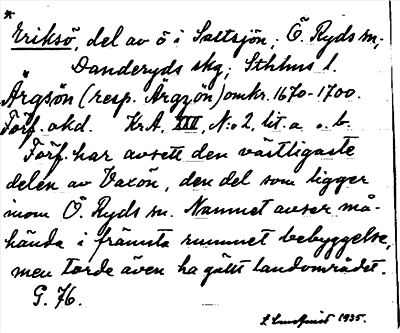 *
Eriksö, del av ö i Saltsjön, Ö. Ryds sn,
Danderyds skg, Sthlms l.
Ärgsön (resp. Ärgzön) omkr. 1670-1700.
Förf. okd. Kr.A. XXII, N:o 2, lit. a o. b.
Förf. har avsett den västligaste
delen av Vaxön, den del som ligger
inom Ö. Ryds sn. Namnet avser må-
hända i främsta rummet bebyggelse,
men torde även ha gällt landområdet.
G. 76.
E Lundqvist 1935.